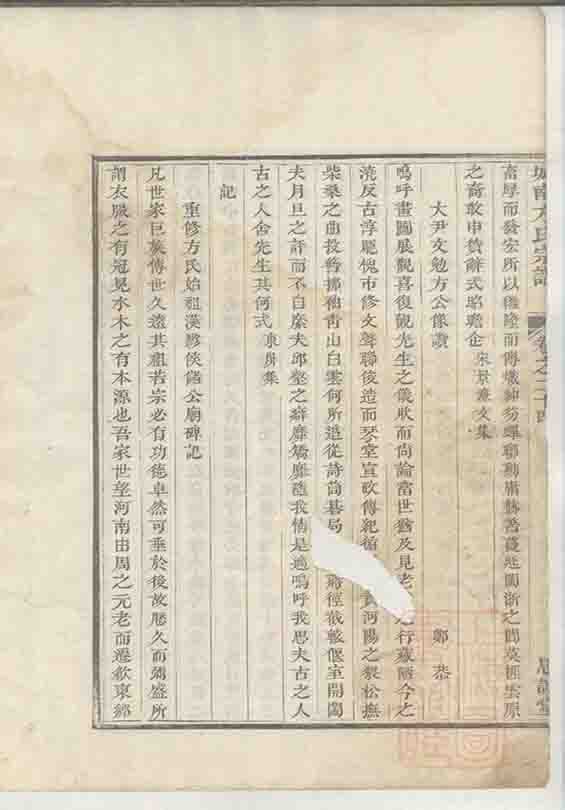 城南方氏宗譜 卷之二十四 思誠堂
畜厚而發宏所以繼隆而傳熾紳芬蟬聯勒庸懋舊蔓延閩浙之間英匪雲原
之裔敢申贊辭式昭瞻企 宋景濂文集
大尹文勉方公像讚 鄭恭
嗚呼畫圖展觀喜復覿先生之儀狀而尚論當世猶及見老之行藏陋今之
澆反古淳龐愧市修文聲聯後造而琴堂宣政傳紀循河陽之裂松撫
柴桑之曲投簪挪袖青山白雲何所追從詩筒碁局蔣徑戴懿偃室開闔
夫月旦之評而不自縻夫邱壑之癖靡矯靡隨我情是適嗚呼我思夫古之人
古之人舍先生其何式 東房集
記
重修方氏始祖漢黟侯儲公廟碑記
凡世家巨族傳世久遠其祖若宗必有功德卓然可垂於後故愿久而彌盛所
謂衣服之有冠冕水木之有本源也吾家世望河南由周之元老而悉歙東鄉